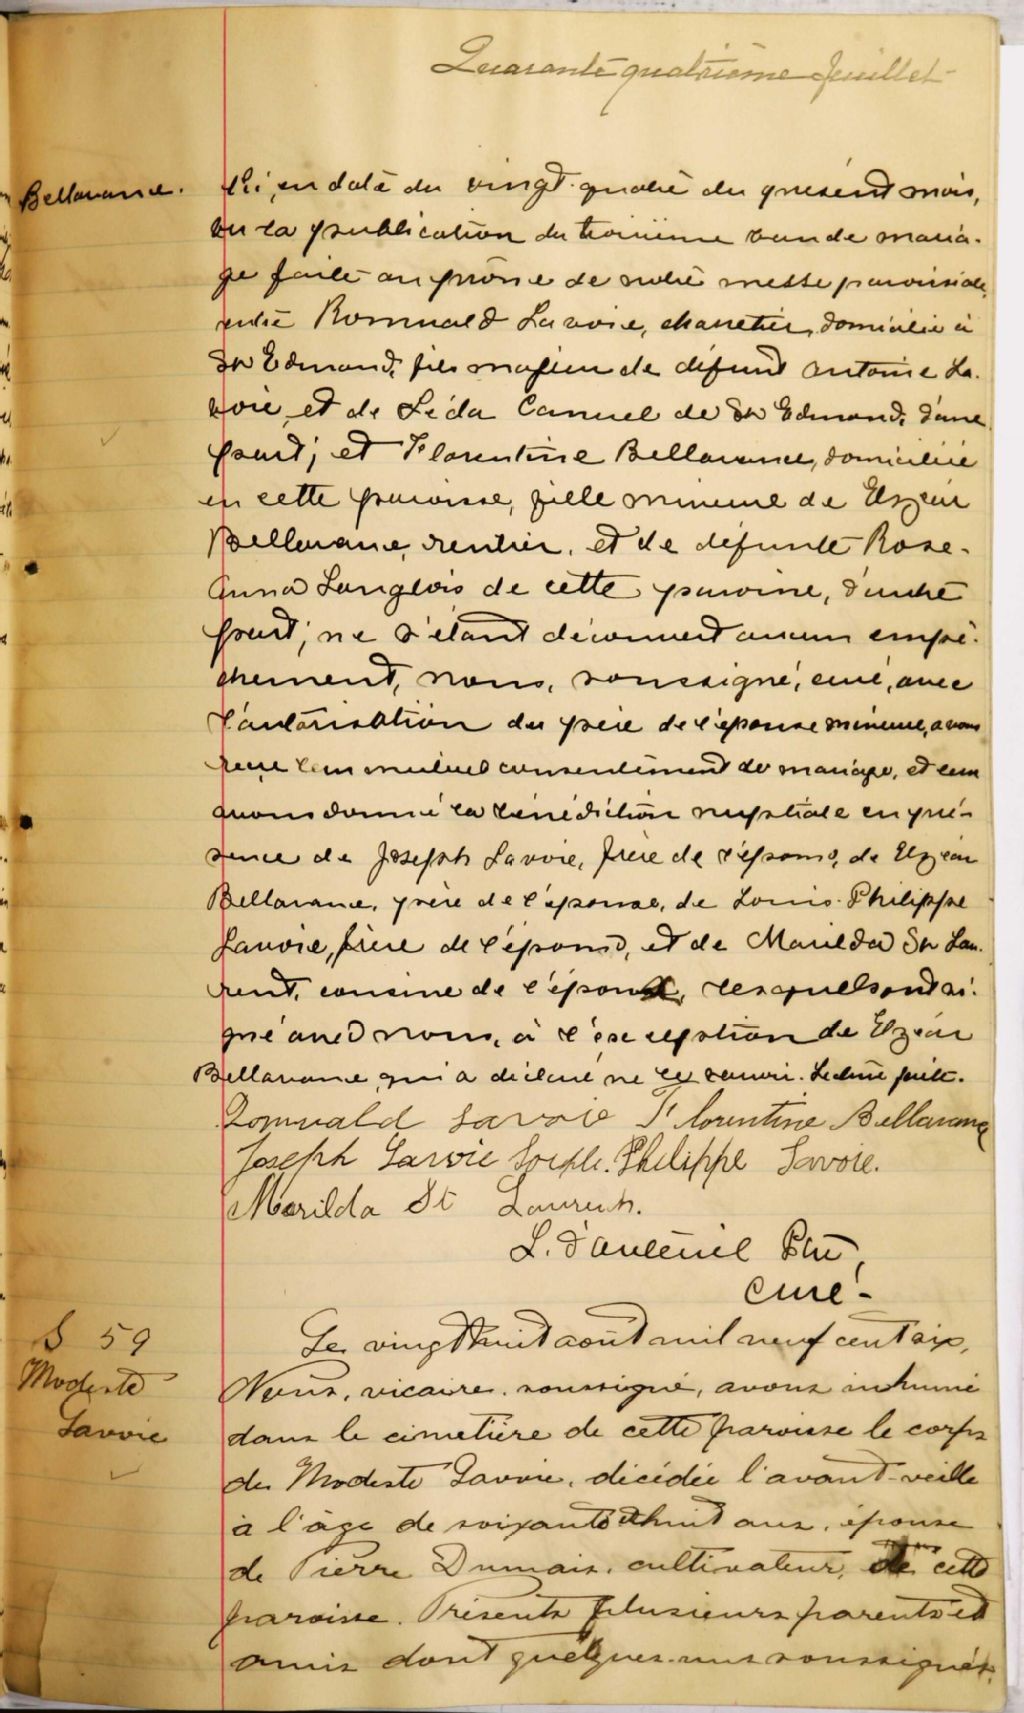 Quarante quatrième feuillet
Bellavance.
ki, en date du vingt-quatre du présent mois,
vu la publication du troisième ban de maria-
ge faite au prône de notre messe paroissiale,
entre Romuald Lavoie, charretier, domicilié à
St Edmond, fils majeur de défunt Antoine La-
voie, et de Léda Canuel de St Edmond, d'une
part; et Florentine Bellavance, domiciliée
en cette paroisse, fille mineure de Elzéar
Bellavance, rentier, et de défunte Rose-
Anna Langlois de cette paroisse, d'autre
part; ne s'étant découvert aucun empê-
chement, nous, soussigné, curé, avec
l'autorisation du père de l'épouse mineure, avons
reçu leur mutuel consentement de mariage, et leur
avons donné la bénédiction nuptiale en pré-
sence de Joseph Lavoie, frère de l'époux, de Elzéar
Bellavance, père de l'épouse, de Louis-Philippe
Lavoie, frère de l'époux, et de Marilda St Lau-
rent, cousine de l'époux, lesquels ont si-
gné avec nous, à l'exception de Elzéar
Bellavance qui a déclaré ne le savoir. Lecture faite.
Romuald Lavoie Florentine Bellavance
Joseph Lavoie Philippe Lavoie.
Marilda St Laurent.
L. d'Auteuil Ptre,
curé-
S 59
Modeste
Lavoie
Le vingt huit août mil neuf cent six,
Nous, vicaire soussigné, avons inhumé
dans le cimetière de cette paroisse le corps
de Modeste Lavoie, décédée l'avant-veille
à l'âge de soixante et huit ans, épouse
de Pierre Dumais, cultivateur, de cette
paroisse. Présents plusieurs parents et
amis dont quelques-uns soussignés.